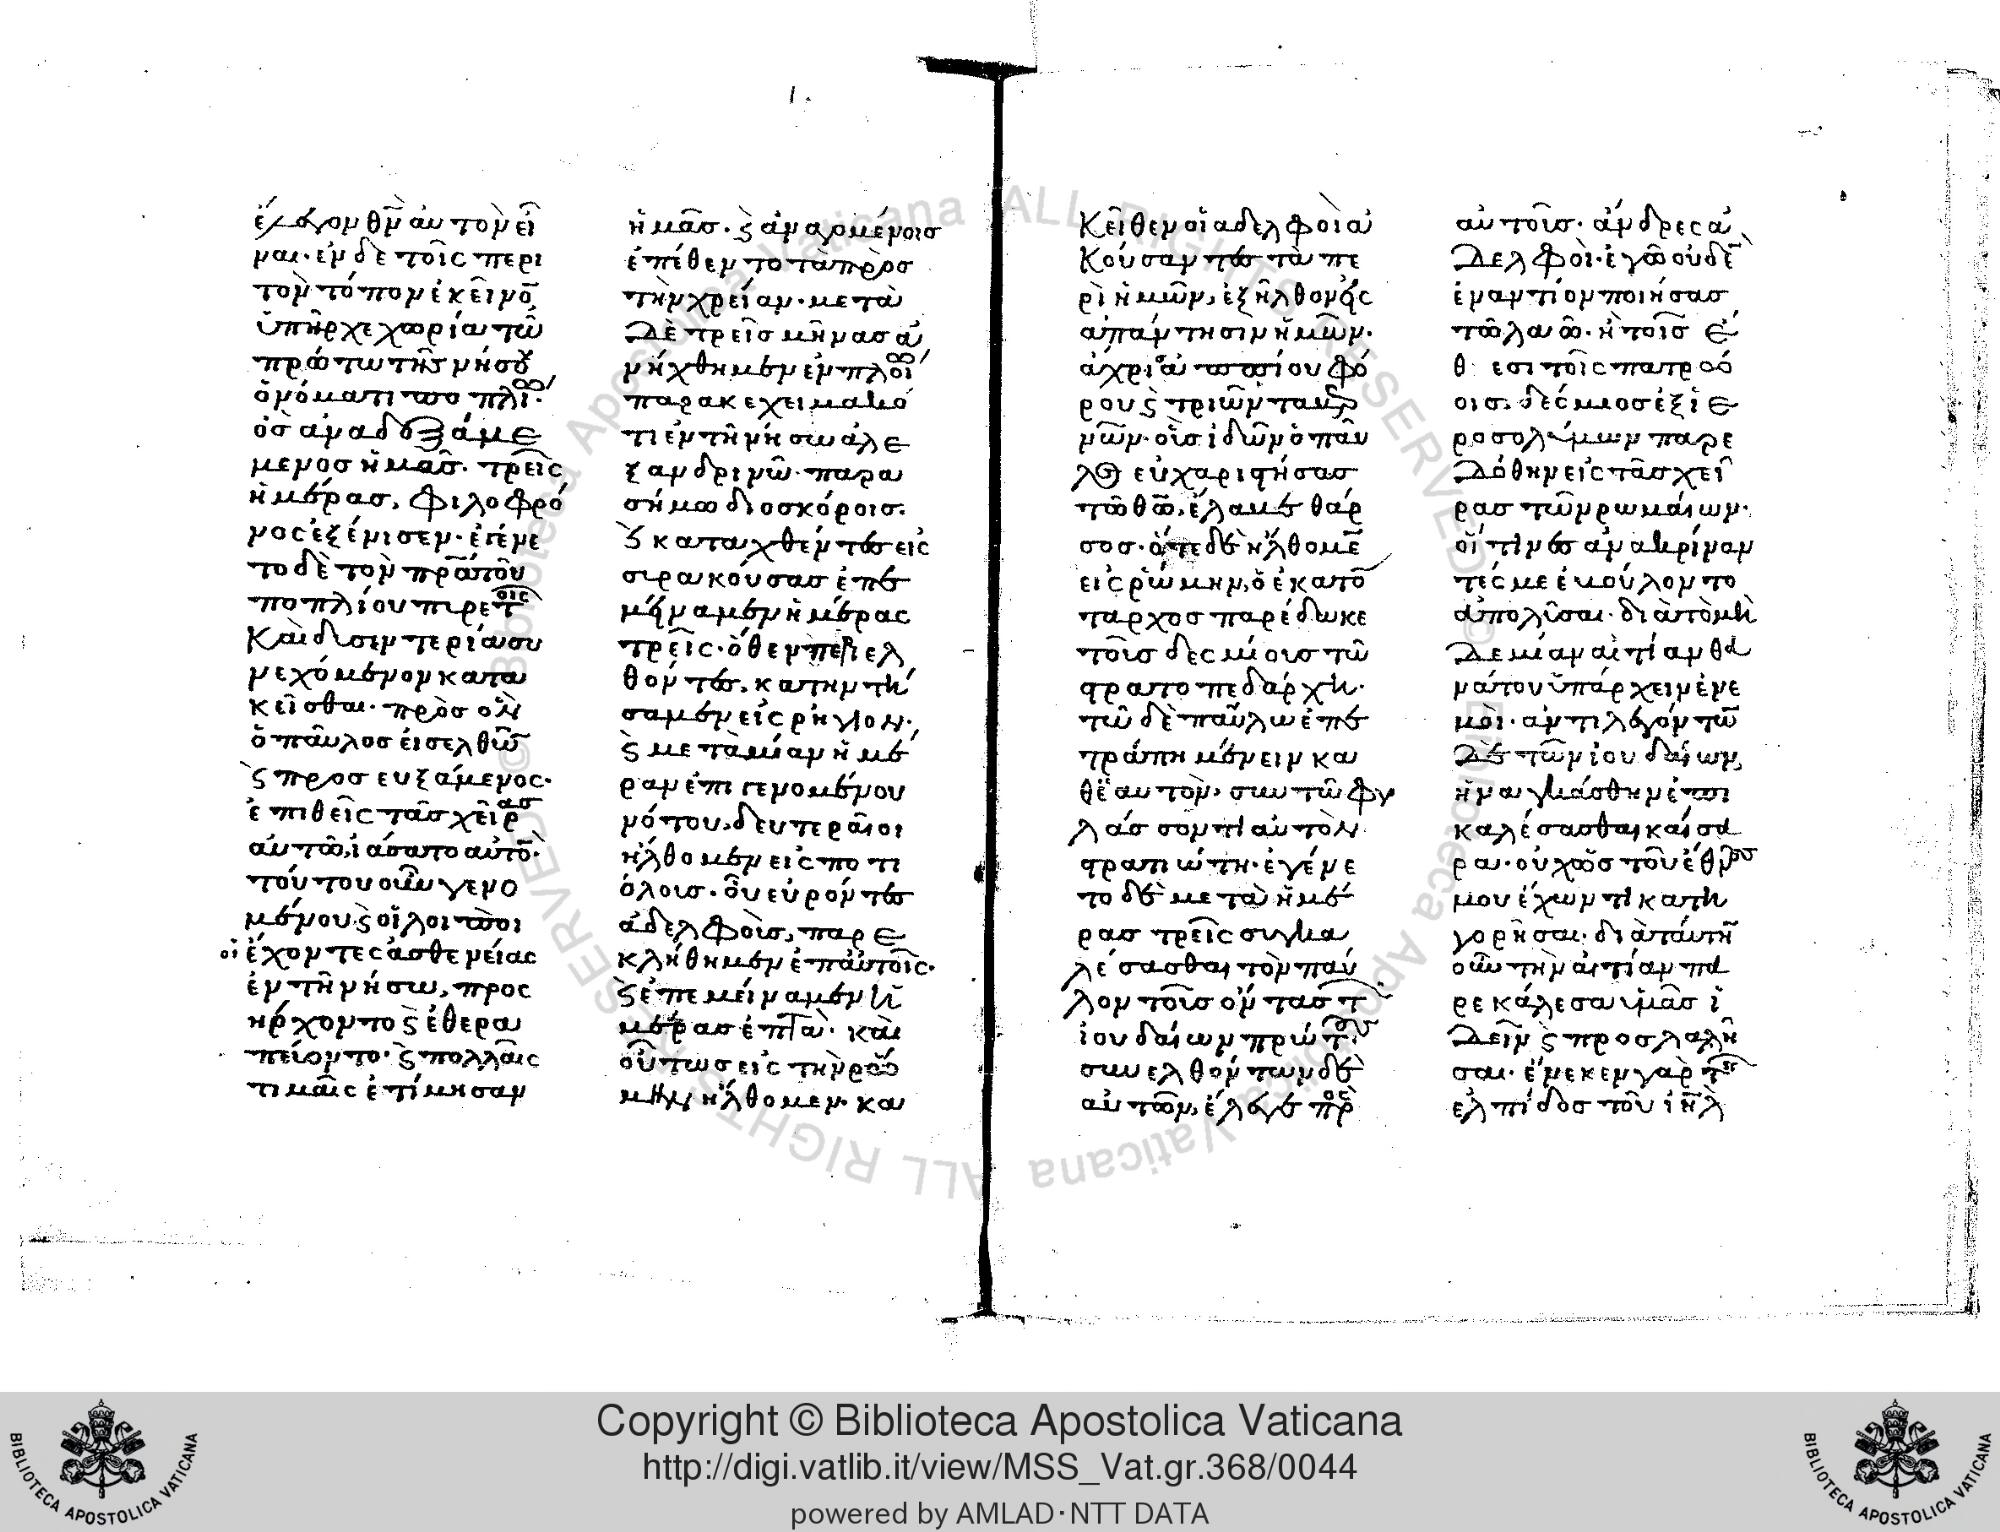 ἔλεγον θν̅ αὐτὸν εἶ
ναι· ἐν δὲ τοῖς περι
τὸν τόπον ἐκεῖνο̅
ὑπῆρχε χωρία τῶ
πρώτω τῆς νήσου
ὀνόματι ποπλί·
ὃσ ἀναδεξάμε
μενοσ ἡμᾶσ· τρεῖς
ἡμέρασ, φιλοφρό
νος ἐξένισεν· ἐγένε
το δὲ τὸν πρ̅α τοῦ
ποπλίου πυρετοῖς
καὶ δισεντερία συ
νεχόμενον κατα
κεῖσθαι· πρὸσ ὃν
ὁ παῦλοσ εἰσελθὼ̅
ϛ προσευξάμενος·
ἐπιθεῖς τὰσ χεῖρασ
αὐτῶ, ἰάσατο αὐτὸ̅·
τούτου οὖν γενο
μένου ϛ οἱ λοιποι
οἱ ἔχοντες ἀσθενείας
ἐν τῆ νήσω, προς
ήρχοντο ϛ ἐθερα
πείοντο· ϛ πολλαῖς
τιμαῖς ἐτίμησαν
ἡμᾶσ· ϛ ἀναγομένοισ
ἐπέθεντο τὰ πρὸσ
τὴν χρείαν· μετὰ
δὲ τρεῖσ μῆνασ ἀ
νήχθημεν ἐν πλοίω
παρακεχειμακό
τι ἐν τῆ νήσω ἀλε
ξανδρινῶ· παρα
σήμω διοσκόροισ·
ϛ καταχθέντες εἰς
σιρακούσασ ἐπε
μείναμεν ἡμέρας
τρεῖς· ὅθεν περιελ
θόντες, κατηντή
σαμεν εἰς ρήγιον·
ϛ μετὰ μίαν ἡμέ
ραν ἐπιγενομένου
νότου, δευτεραῖοι
ήλθομεν εἰς ποτι
όλοισ· οὗ εὑρόντες
ἀδελφοὺσ, παρε
κλήθημεν ἐπ αὐτοῖς·
ϛ ἐπεμείναμεν ἡ
μέρασ ἐπτὰ· καὶ
οὕτωσ εἰς τὴν ρώ
μην ἤλθομεν· κα
Κεῖθεν οἱ αδελφοὶ ἀ
κούσαντες τὰ πε
ρὶ ἡμῶν, ἐξῆλθον εἰς
ἀπάντησιν ἡμῶν·
ἄχρι ἀππίου φό
ρου ϛ τριῶν ταβερ
νῶν· οὓσ ἰδὼν ὁ παῦ
λος εὐχαριστήσασ
τῶ θω̅, ἔλαβε θάρ
σοσ· ὅτε δὲ ἤλθομε̅
εἰς ῥώμην, ὁ ἑκατό
ταρχοσ παρέδωκε
τοὺσ δεσμίουσ τῶ
στρατοπεδάρχη·
τῶ δὲ παύλω ἐπε
τράπη μένειν κα
θ ἑαυτὸν· συν τῶ φυ
λάσσοντι αὐτὸν
στρατιώτη· ἐγένε
το δὲ μετὰ ἡμέ
ρασ τρεῖς συγκα
λέσασθαι τὸν παύ
λον τοὺσ όντασ τ
ἰουδαίων πρώτους·
συνελθόντων δὲ
αὐτῶν, ἔλεγε πρὸς
αὐτοὺσ· άνδρες ἀ
δελφοὶ· ἐγὼ οὐδε̅
ἐναντίον ποιήσασ
τῶ λαῶ· ἢ τοῖσ ἔ
θεσι τοῖς πατρώ
οισ, δέσμιοσ ἐξ ἱε
ροσολύμων παρε
δόθην εἰς τὰσ χεῖ
ρασ τῶν ρωμαίων·
οἵτινες ἀνακρίναν
τές με ἐβούλοντο
ἀπολῦσαι· διὰ τὸ μη
δεμίαν αἰτίαν θα
νάτου ὑπάρχειν ἐν ε
μοὶ· ἀντιλεγόντω̅
δὲ τῶν ἰουδαίων,
ἠναγκάσθην ἐπι
καλέσασθαι καίσα
ρα· οὐχ ὡς τοῦ ἔθνουσ
μου έχων τι κατη
γορῆσαι· διὰ ταύτη̅
οὖν τὴν αἰτίαν πα
ρεκάλεσα ὑμᾶσ ἰ
δεῖν ϛ προσλαλῆ
σαι· ἕνεκεν γὰρ τῆς
ἐλπίδοσ τοῦ ἰη̅λ
Copyright © Biblioteca Apostolica Vaticana
http://digi.vatlib.it/view/MSS_Vat.gr.368/0044
powered by AMLAD·NTT DATA
BIBLIOTECA APOSTOLICA VATICANA
BIBLIOTECA APOSTOLICA VATICANA
© Biblioteca Apostolica Vaticana ALL RIGHTS RESERVED
© Biblioteca Apostolica Vaticana ALL RIGHTS RESERVED